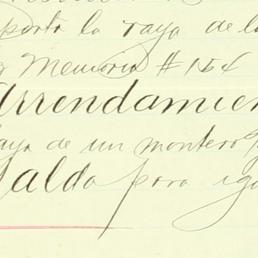 porto la raya de la
Memoria #154
Arrendamien
raya de un montero
Saldo para igu